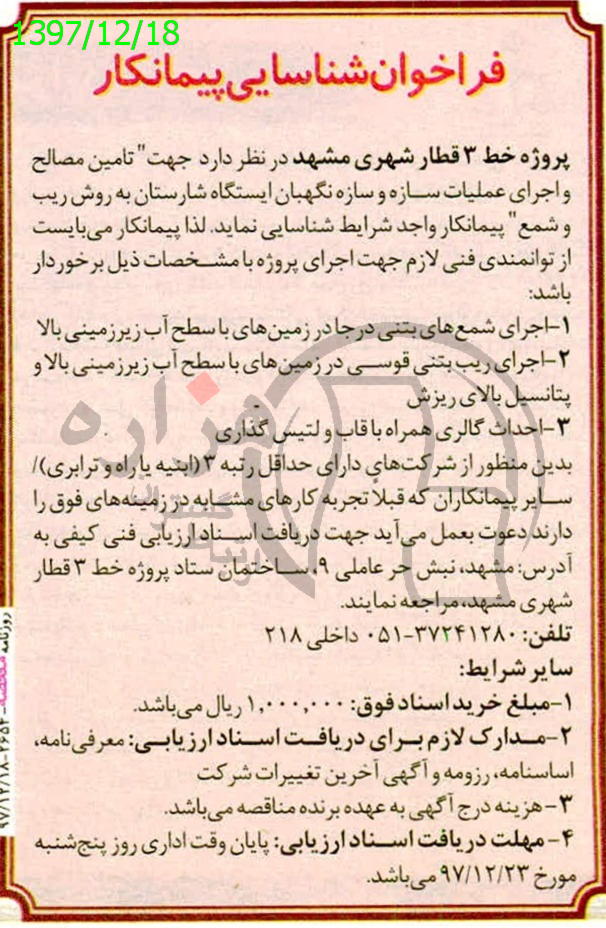 1397/12/18
فراخوان شناسایی پیمانکار
پروژه خط ۳ قطار شهری مشهد در نظر دارد جهت "تامین مصالح
و اجرای عملیات سازه و سازه نگهبان ایستگاه شارستان به روش ریب
و شمع" پیمانکار واجد شرایط شناسایی نماید. لذا پیمانکار می‌بایست
از توانمندی فنی لازم جهت اجرای پروژه با مشخصات ذیل برخوردار
باشد:
۱-اجرای شمع‌های بتنی درجا در زمین‌های با سطح آب زیرزمینی بالا
۲-اجرای ریب بتنی قوسی در زمین‌های با سطح آب زیرزمینی بالا و
پتانسیل بالای ریزش
۳-احداث گالری همراه با قاب و لتیس گذاری
بدین منظور از شرکت‌های دارای حداقل رتبه ۳ (ابنیه یا راه و ترابری)/
سایر پیمانکاران که قبلاً تجربه کارهای مشابه در زمینه‌های فوق را
دارند دعوت بعمل می‌آید جهت دریافت اسناد ارزیابی فنی کیفی به
آدرس: مشهد، نبش حر عاملی ۹، ساختمان ستاد پروژه خط ۳ قطار
شهری مشهد، مراجعه نمایند.
تلفن: ۳۷۲۴۱۲۸۰-۰۵۱ داخلی ۲۱۸
سایر شرایط:
۱-مبلغ خرید اسناد فوق: ۱,۰۰۰,۰۰۰ ریال می‌باشد.
۲-مدارک لازم برای دریافت اسناد ارزیابی: معرفی‌نامه،
اساسنامه، رزومه و آگهی آخرین تغییرات شرکت
۳-هزینه درج آگهی به عهده برنده مناقصه می‌باشد.
۴-مهلت دریافت اسناد ارزیابی: پایان وقت اداری روز پنج‌شنبه
مورخ ۹۷/۱۲/۲۳ می‌باشد.
هزاره
روزنامه مناقصه